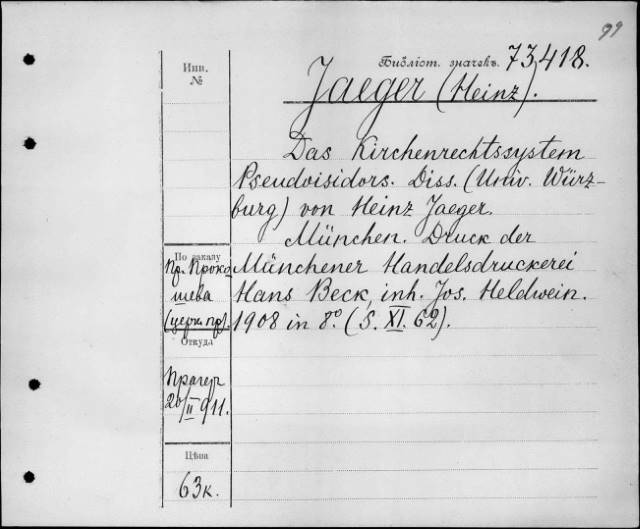 99
Инв.
№
Библіот. значекъ. 73418.
Jaeger (Heinz).
Das Kirchenrechtssystem
Pseudoisidors. Diss. (Univ. Würz-
burg) von Heinz Jaeger.
München. Druck der
Münchener Handelsdruckerei
Hans Beck, inh. Jos. Heldwein.
1908 in 8° (S. XI. 62).
По заказу
Пр. Проко
шева
(церк. пр).
Откуда
Прагеръ
20/II 911.
Цѣна
63к.